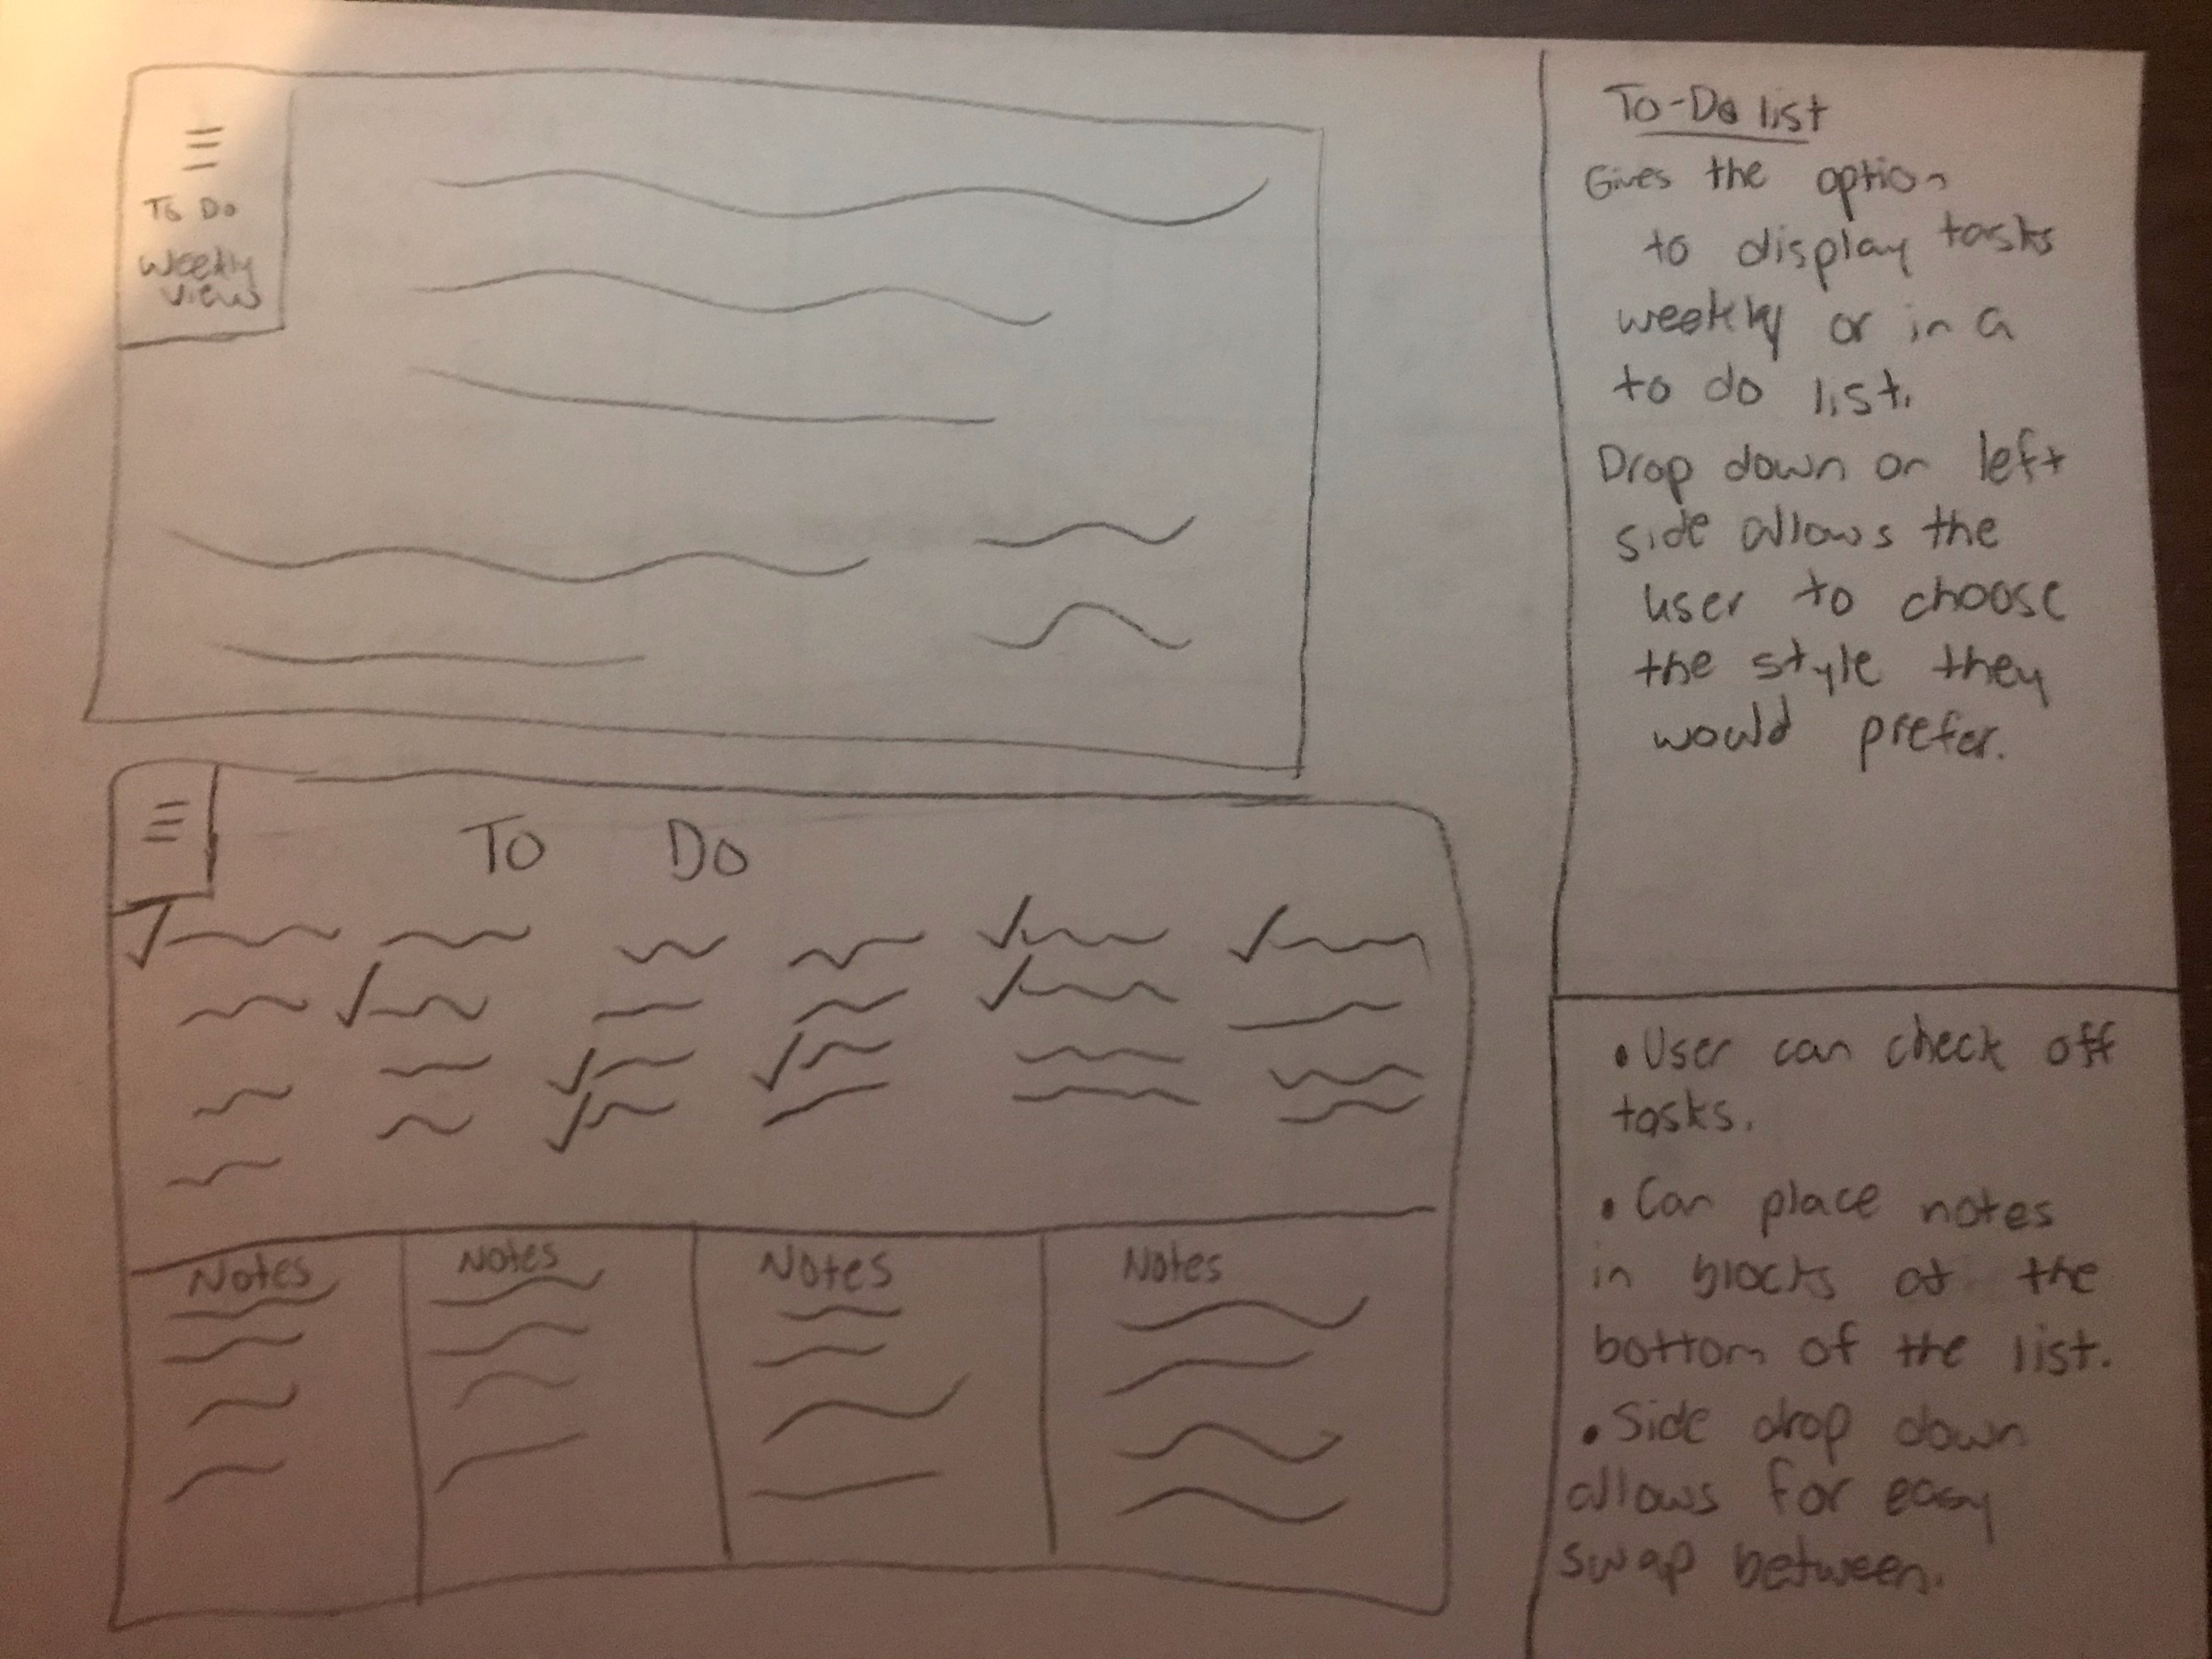 To Do
Weekly
View
To-Do list
Gives the option
to display tasks
weekly or in a
to do list.
Drop down on left
side allows the
user to choose
the style they
would prefer.
To Do
Notes
Notes
Notes
Notes
• User can check off
tasks.
• Can place notes
in blocks at the
bottom of the list.
• Side drop down
allows for easy
swap between.